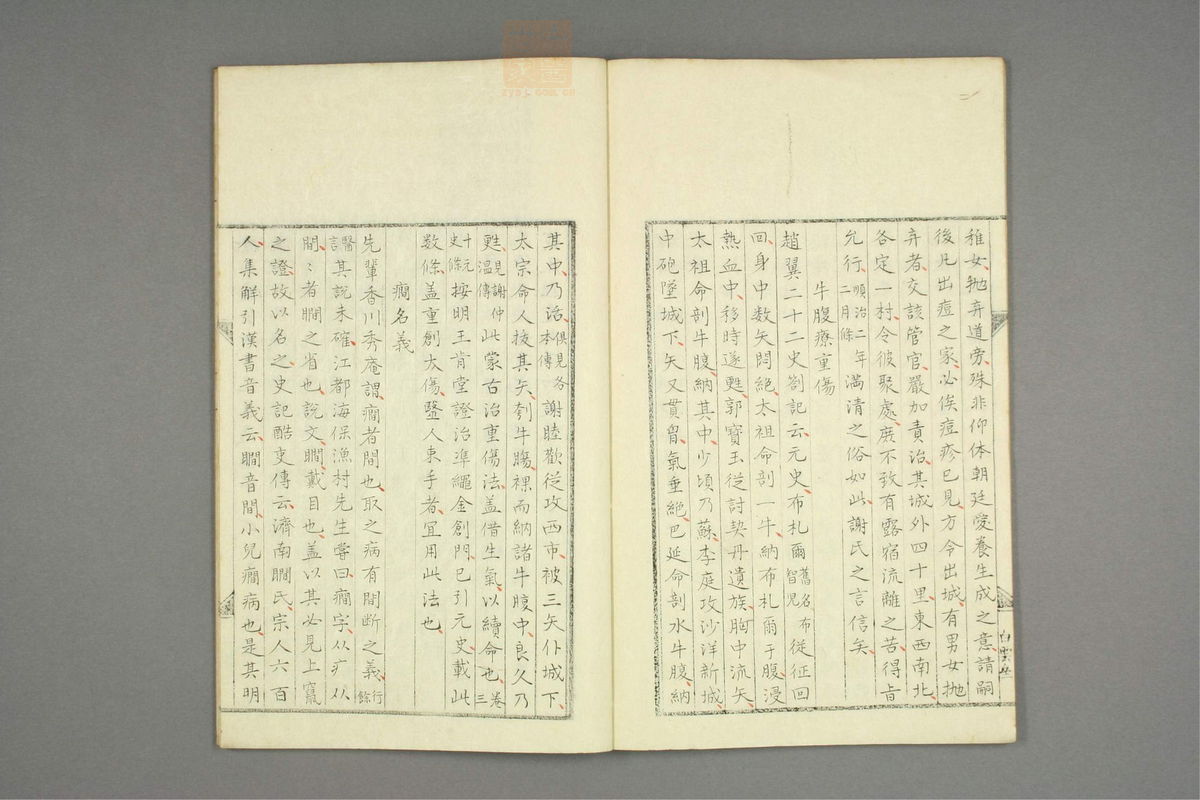 稚女抛弃道旁殊非仰体朝廷愛養生成之意請嗣
後凡出痘之家必俟痘疹已見方令出城有男女抛
弃者交該管官嚴加責治其城外四十里東西南北
各定一村令彼聚處庶不致有露宿流離之苦得旨
允行順治二年二月條満清之俗如此謝氏之言信矣
牛腹療重傷
趙翼二十二史劄記云元史布札爾舊名布智児從征回
回身中数矢悶絶太祖命剖一牛納布札爾于腹浸
熱血中移時遂甦郭寶玉從討契丹遺族胸中流矢
太祖命剖牛腹納其中少頃乃蘇李庭攻沙洋新城
中砲墜城下矢又貫胷氣垂絶巴延命剖水牛腹納
其中乃活俱見各本傳謝睦歡従攻西市被三矢仆城下
太宗命人抜其矢刳牛膓裸而納諸牛腹中良久乃
甦見謝仲温傳此蒙古治重傷法盖借生氣以續命也卷三
十元史條按明王肯堂證治準繩金創門已引元史載此
数條盖重創大傷毉人束手者冝用此法也
癇名義
先輩香川秀庵謂癇者間也取之病有間断之義行餘
醫言其説未確江都海保漁村先生嘗曰癇字从疒从
間間者瞯之省也説文瞯戴目也盖以其必見上竄
之證故以名之史記酷吏傳云濟南瞯氏宗人六百
人集解引漢書音義云瞯音間小兒癇病也是其明
白雲